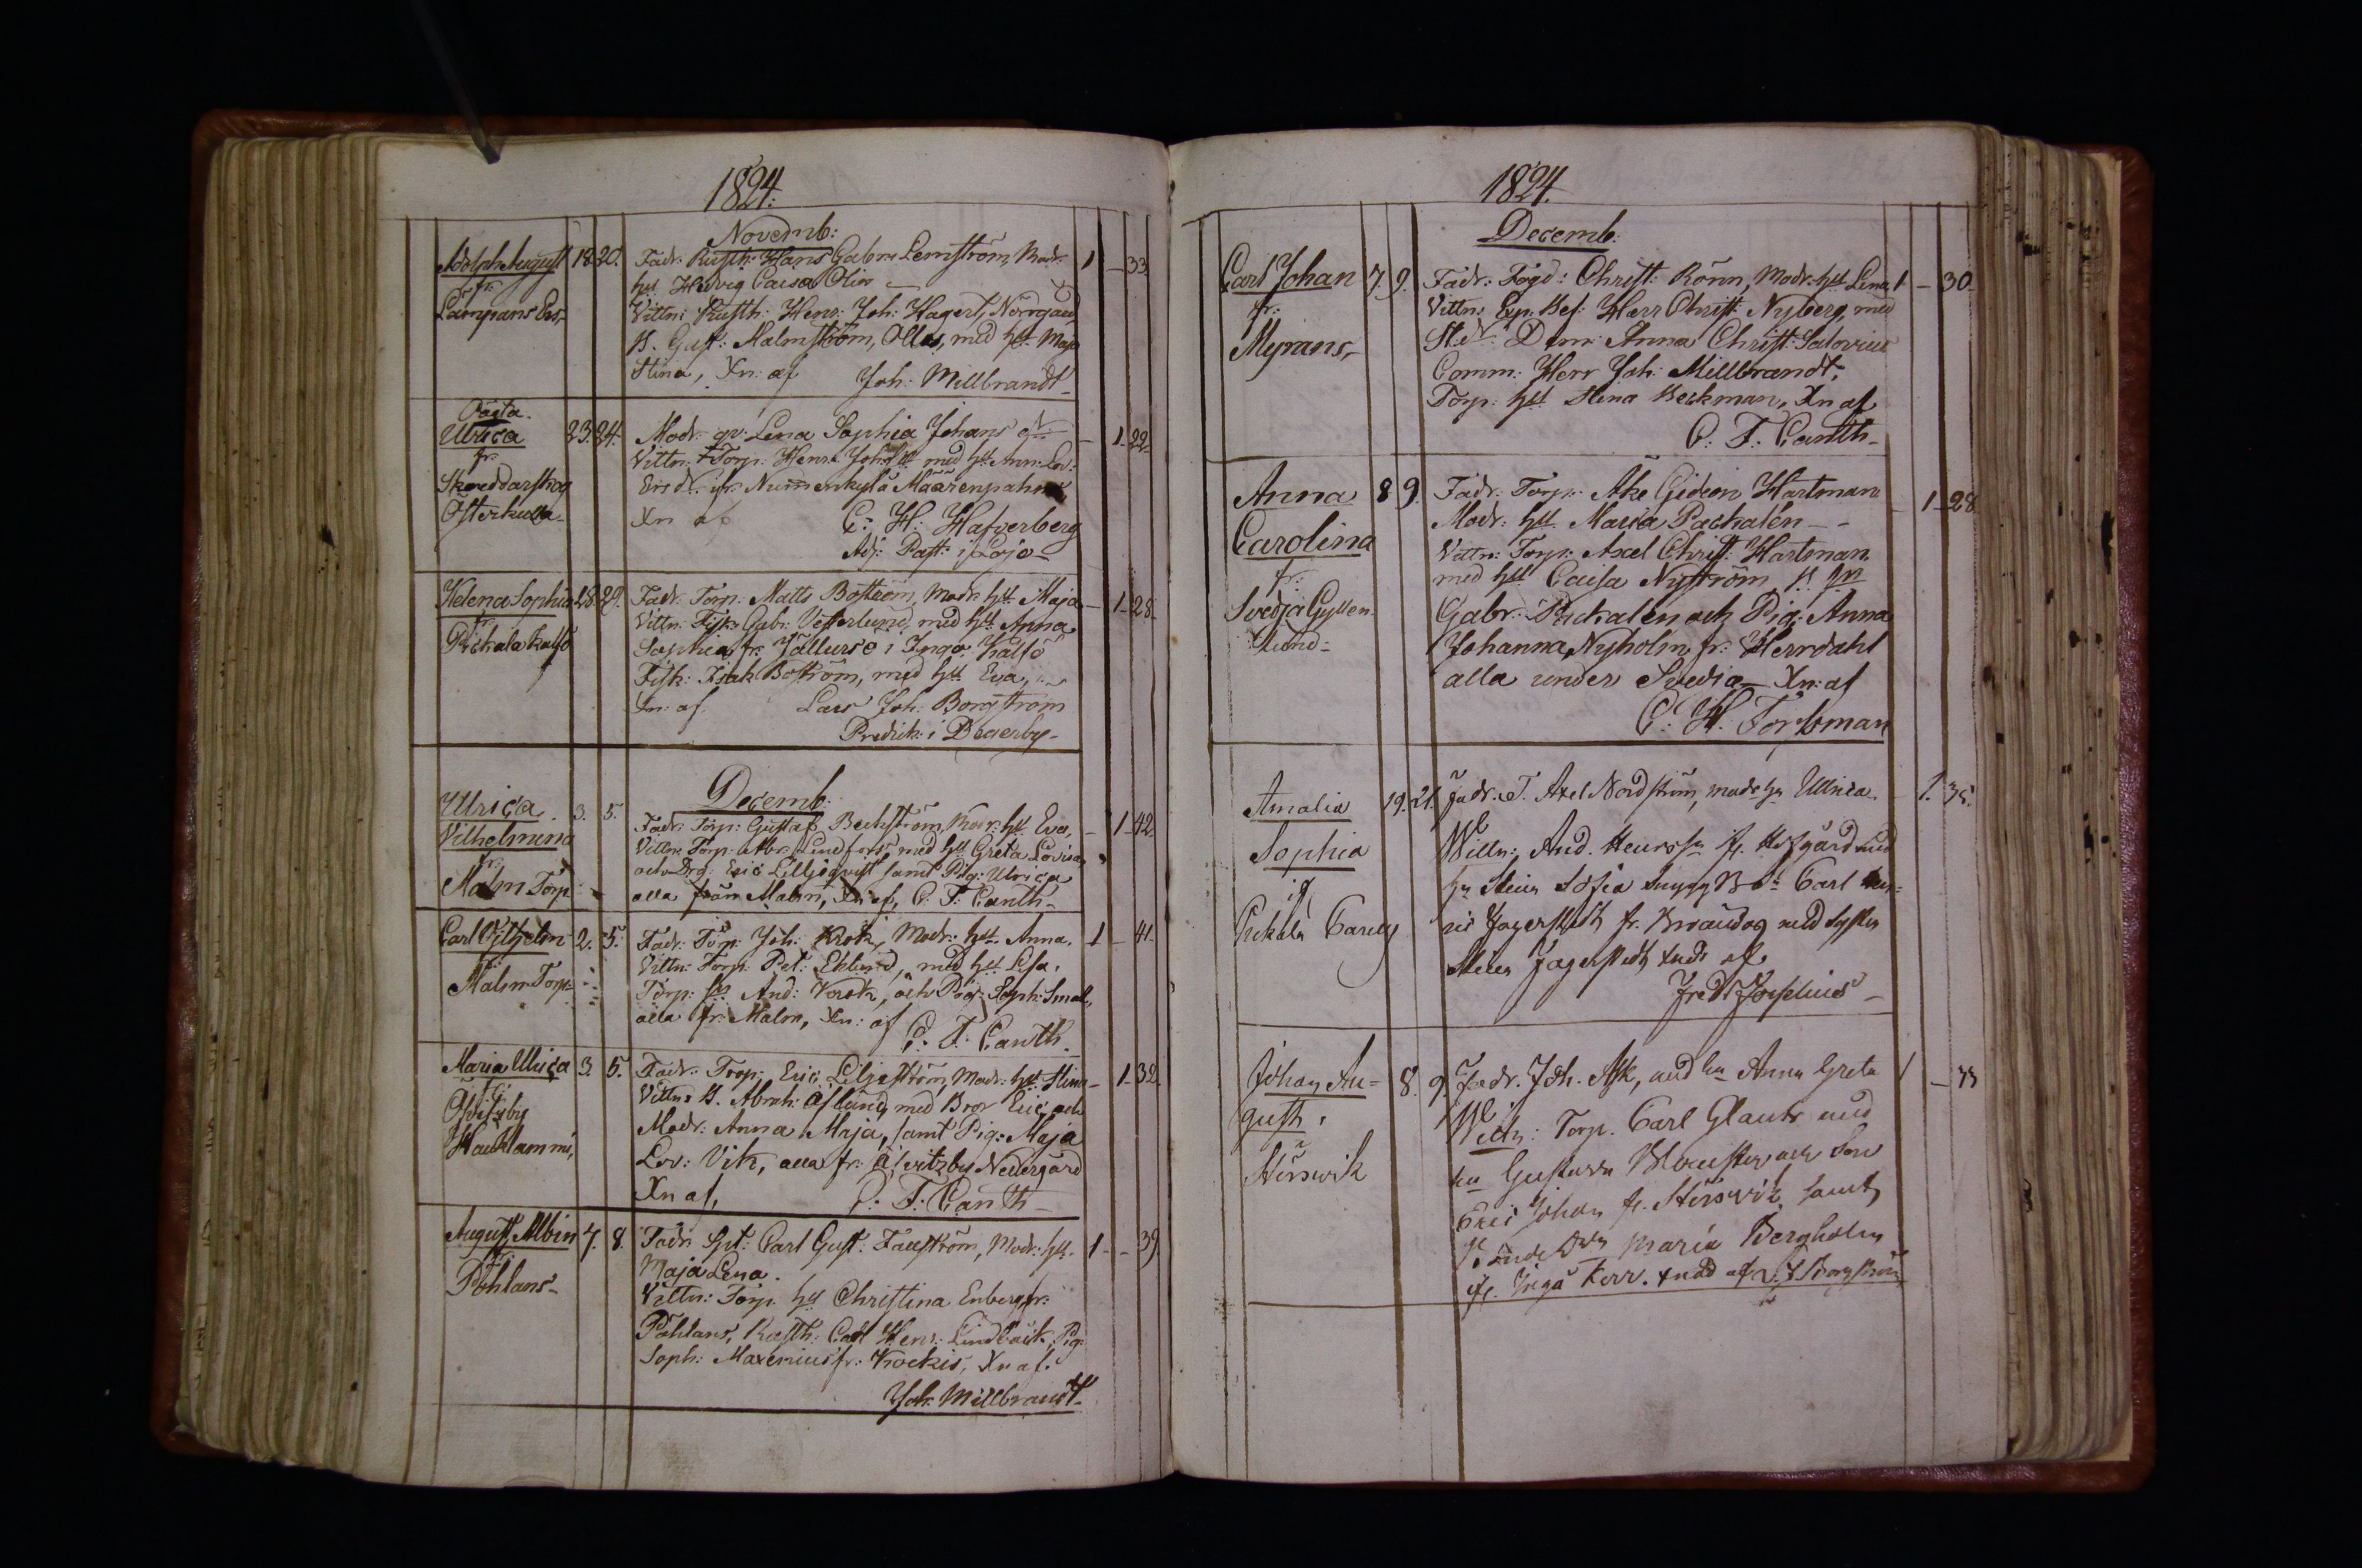 1824.
Novemb:
Adolph August 18. 20. Fadr: Rusth: Hans Gabr: Lemström, Modr: 1 – 33.
fr: hu Hedvig Caisa Olin –
Lampans Ers, Vittn: Rusth: Henr: Joh: Hagert, Norrgård
B. Gust: Malmström, Ollas, med hu Maja
Stina, Xn: af Joh: Millbrandt –
Oägta.
Ulrica 23. 24. Modr: qv: Lena Sophia Johans dr – 1– 22–
fr: Vittn: Torp: Henr: med hu Ann: Lov:
Skreddarskog Ers dr fr: Nummenkylä
Österkulla– Xn af C: H: Hafverberg
Adj: Past: i Lojo–
Helena Sophia 28. 29. Fadr: Torp: Matts Boström, Modr: hu Maja – 1–28–
fr: Vittn: Fisk: Gabr: Vesterlund, med hu Anna
Pickala Kalfö Sophia, fr: i Ingo
Fisk: Isak Boström, med hu Eva,
Xn: af. Lars Joh: Borgström
Predik: i Degerby–
Decemb:
Ulrica 3. 5. Fadr: Torp: Gustaf Beckström, Modr: hu Eva, – 1–42.
Vilhelmina Vittn: Torp: Abr: Lindfors med hu Greta Lovisa,
fr: och Drg: Eric Lilljeqvist samt Pig: Ulrica
Malm Torp alla från Malm, Xn af, C: F: Canth–
Carl Vilhelm 2. 5. Fadr: Torp: Joh: Krok, Modr: hu Anna. 1 – 41.
fr: Vittn: Torp: Pet: Eklund, med hu Lisa,
Malm Torp: Torp: And: Krok, och Pig: Soph: Small,
alla fr: Malm, Xn: af C: F: Canth.
Maria Ulrica 3. 5. Fadr: Torp: Eric Liljeström, Modr: hu Stina– 1–32.
fr: Vittn: B. Abrah: Aflund, med Bror Eric, och
Ofvitzby Modr: Anna Maja, samt Pig: Maja
Hauklammi, Lov: Vik, alla fr: Åfvitzby Nedergård
Xn af, C: F: Canth–
August Albin 7. 8. Fadr: Spt: Carl Gust: Fallström, Modr: hu 1 – – 39.
fr: Maja Lena.
Pohlans– Vittn: Torp: hu Christina Enberg fr:
Pohlans, Rusth: Carl Henr: Lindbäck, Pig:
Soph: Maxenius fr: Krockis, Xn af.
Joh: Millbrandt–
1824.
Decemb:
Carl Johan 7. 9. Fadr: Fogd: Christ: Rönn, Modr: hu Lena 1 – 30.
fr: Vittn: Exp: Bef: Herr Christ: Nyberg, med
Myrans– Dem: Anna Christ: Salovius
Comm: Herr Joh: Millbrandt,
Torp: hu Stina Beckman, Xn af
C: F: Canth–
Anna 8 9. Fadr: Torp: Åke Gideon Hartman – 1–28
Carolina Modr: hu Maria Packalén – –
fr: Vittn: Torp: Axel Christ: Hartman
Svedja Gyllen- med hu Caisa Nyström,
Gabr: Pickalen och Pig: Anna
Johanna Nyholm fr: Herrdahl
alla under Svedja – Xn: af
C: H: Forssman
Amalia 19. 21. Fadr: T. Axel Nordström, modr hu Ulrica 1. 35.
Sophia Wittn: And. Henrss fr. Hofgård med
if hu Stina Sofia Carl Hen=
Pickala ric Jagerstedt fr. med syster
Stina Jagerstedt Xnd af
Fred: Forselius –
Johan Au= 8. 9. Fadr. Joh. Ask, md hu Anna Greta 1 –
gust. Wittn: Torp. Carl Glants med
Störswik hu Gustava och Son
Eric Johan fr. Störsvik samt
Maria Bergholm
fr. Ingå Xndd af L. J. Borgström